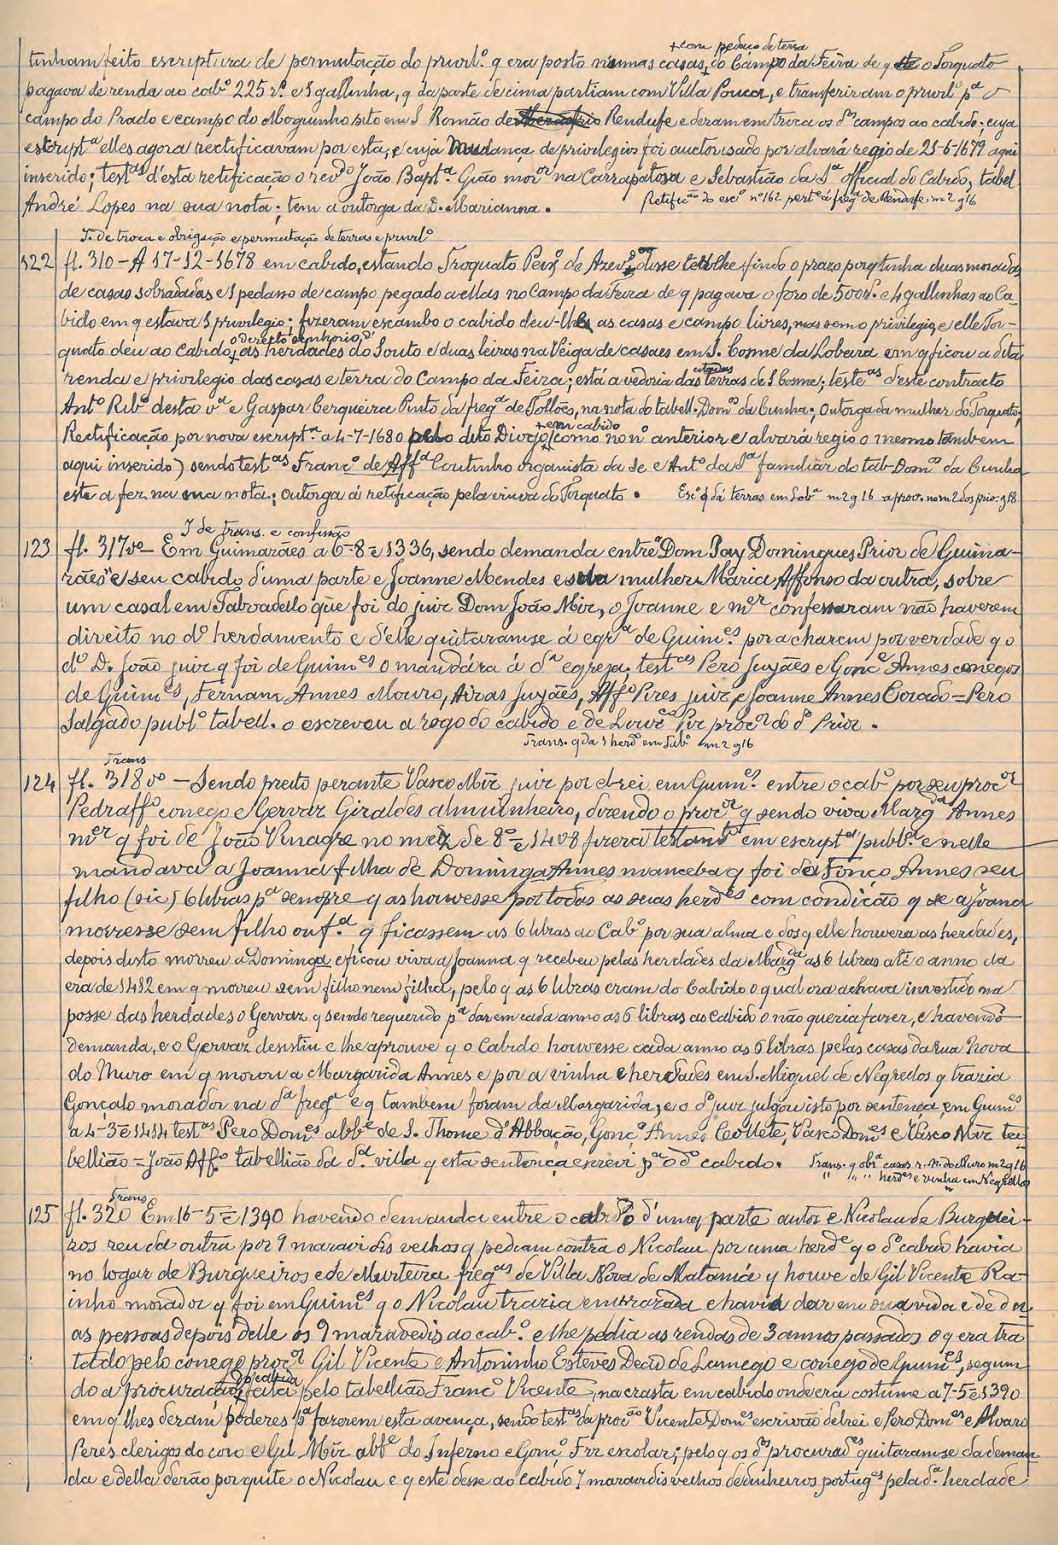 + com pedaço de terra
tinham feito escriptura de permutação do privil.º q era posto n'umas casas, do Campo da Feira de q o Torquato
pagava de renda ao cab.º 225 r.s e 1 gallinha, q da parte de cima partiam com Villa Pouca, e transferiram o privil.º p.ª o
campo do Prado e campo do Moguinho sito em S. Romão de Rendufe e deram em troca os d.os campos ao cabido; cuja
escript.ª elles agora rectificavam por esta, e cuja mudança de privilegios foi auctorisado por alvará regio de 21-6-1679 aqui
inserido; test.as d'esta retificação o rev.do João Bapt.ª Gião mor.or na Carrapatosa e Sebastião da S.ª official do Cabido, tabel
André Lopes na sua nota; tem a outorga da D. Marianna.
Retific.ão do esc.º nº 162 pert.e á freg.ª de Rendufe. m 2 g 16
T. de troca e obrigação e permutação de terras e privil.º
122 fl. 310 – A 17-12-1678 em cabido, estando Troquato Per.ª de Azev.º, disse ter-lhe findo o prazo porq tinha duas moradas
de casas sobradadas e 1 pedaso de campo pegado a ellas no Campo da Feira de q pagava o foro de 500 r.s e 4 gallinhas ao Ca-
bido em q estava 1 privilegio; fizeram escambo o cabido deu-lhe as casas e campo livres, mas sem o privilegio, e elle Tor-
o direito senhorio d'
quato deu ao cabido, as herdades do Souto e duas leiras na Veiga de casaes em S. Cosme da Lobeira em q ficou a dita
citadas
renda e privilegio das casas e terra do Campo da Feira; está a vedoria das terras de S. Cosme; test.as d'este contracto
Ant.º Rib.º desta v.ª e Gaspar Cerqueira Pinto da freg.ª de Tollões, na nota do tabell. Dom.os da Cunha; Outorga da mulher do Torquato;
+ em cabido
Rectificação por nova escript.ª a 4-7-1680 pelo dito Diogo, (como no n.º anterior e alvará regio o mesmo tambem
aqui inserido) sendo test.as Franc.º de Aff.ª Coutinho organista da Se e Ant.º da S.ª familiar do tab. Dom.os da Cunha
este a fez na sua nota; outorga á retificação pela viuva do Torquato. Esc.º q dá terras em Lob.ª m 2 g 16 aprov. no m 2 dos priv. g 18
T de trans. e confissão
123 fl. 317 vº – Em Guimarães a 6-8-E 1336, sendo demanda entre "Dom Pay Domingues Prior de Guima-
rães" e seu cabido d'uma parte e Joanne Mendes e sua mulher Maria Affonso da outra, sobre
um casal em Taboadello que foi do juiz Dom João Miz, o Joanne e m.er confessaram não haverem
direito no d.º herdamento e d'elle quitaram se á egr.ª de Guim.es por acharem por verdade q o
d.º D. João juiz q foi de Guim.es o mandára á d.ª egreja; test.as Pero Juyães e Gonç.e Annes conegos
de Guim.es, Fernam Annes Mouro, Airas Juyães, Aff.º Pires juiz e Joanne Annes Corado = Pero
Salgado publ.º tabell. o escreveu a rogo do cabido e de Lour.ço Pir proc.or do d.º Prior.
Trans. q da 1 herd.e em Tab.º m 2 g 16
Trans
124 fl. 318 vº – Sendo preito perante Vasco Miz juiz por el-rei em Guim.es entre o cab.º por seu proc.or
Pedraff.º conego e Gervaz Giraldes almuinheiro, dizendo o proc.or q sendo viva Marg.da Annes
m.er q foi de João Vinagre no mez de 8.º E 1408 fizera testam.to em escript.ª publ.ª e nelle
mandava a Joanna filha de Dominga Annes manceba q foi de Annes seu
filho (sic) 6 libras p.ª sempre q as houvesse por todas as suas herd.es com condição q se a Joana
morresse sem filho ou f.ª q ficassem as 6 libras ao Cab.º por sua alma e dos q elle houvera as herdades,
depois disto morreu a Dominga e ficou viva a Joanna q recebeu pelas herdades da Marg.da as 6 libras até o anno da
era de 1432 em q morreu sem filho nem filha, pelo q as 6 libras eram do Cabido o qual ora achava investido na
posse das herdades o Gervaz q sendo requerido p.ª dar em cada anno as 6 libras ao Cabido o não queria fazer, e havendo
demanda, e o Gervaz desistiu e lhe aprouve q o Cabido houvesse cada anno as 6 libras pelas casas da rua Nova
do Muro em q morou a Margarida Annes e por a vinha e herdades em S. Miguel de Negrellos q trazia
Gonçalo morador na d.ª freg.ª e q tambem foram da Margarida, e o d.º juiz julgou isto por sentença, em Guim.es
a 4-3-E 1434 test.as Pero Dom.es abb.e de S. Thome d'Abbação, Gonç.º Annes Collete, Vasco Dom.es e Vasco Miz ta
bellião = João Aff.º tabellião da d.ª villa q esta sentença escrevi p.ª o d.º cabido. Trans. q obr.ª casas r. N. do Muro m 2 g 16
" " " herd.es e vinha em Negrellos
Trans
125 fl. 320 Em 16-5-E 1390 havendo demanda entre o cabido d'uma parte autor e Nicolau de Burguei-
ros reu da outra por 9 maravidis velhos q pediam contra o Nicolau por uma herd.e q o d.º cabido havia
no logar de Burgueiros e de Murteira freg.as de Villa Nova de Matamá q houve de Gil Vicente Ra-
inho morador q foi em Guim.es q o Nicolau trazia emprazada e havia dar em sua vida e de du
as pessoas depois delle os 9 maravedis ao cab.º e lhe pedia as rendas de 3 annos passados o q era tra
tado pelo conego proc.or Gil Vicente e Antoninho Esteves Deão de Lamego e conego de Guim.es, segun
do a procuração feita pelo tabellião Franc.º Vicente, na crasta em cabido onde era costume a 7-5-E 1390
em q lhes deram poderes p.ª fazerem esta avença, sendo test.as da proc.ão Vicente Dom.es escrivão del rei e Pero Dom.es e Alvaro
Peres clerigos do coro e Gil Miz abb.e do Inferno e Gom.º Frz escolar; pelo q os d.os procurad.es quitaram se da deman
da e della derão por quite o Nicolau e q este desse ao cabido 7 maravidis velhos de dinheiros portug.es pela d.ª herdade